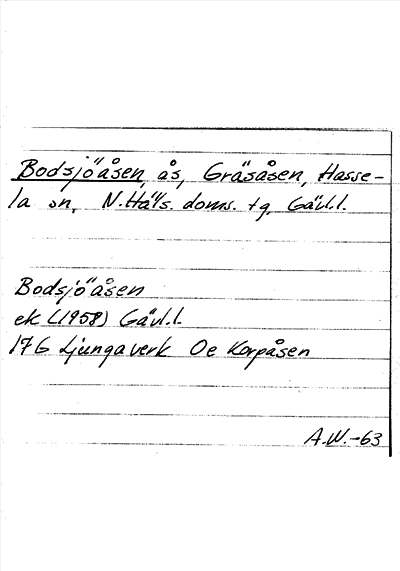 Bodsjöåsen, ås, Gräsåsen, Hasse-
la sn, N.Häls. doms. tg, Gävl.l.
Bodsjöåsen
ek (1958) Gävl.l.
176 Ljungaverk Oe Korpåsen
A.W.-63